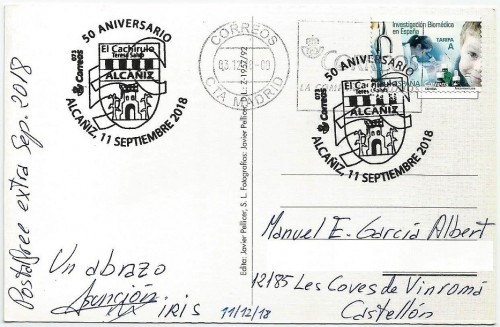 50 ANIVERSARIO
El Cachirulo
Teresa Salvo
ALCAÑIZ
Correos
ALCAÑIZ, 11 SEPTIEMBRE 2018
CORREOS
CTA MADRID
Investigación Biomédica
en España
TARIFA
A
ESPAÑA
50 ANIVERSARIO
El Cachirulo
Teresa Salvo
ALCAÑIZ
Correos
ALCAÑIZ, 11 SEPTIEMBRE 2018
Edita: Javier Pellicer, S. L. Fotografías: Javier Pellicer
Postalfree extra Sep. 2018
Un abrazo
Asunción
IRIS
11/12/18
Manuel E. García Albert
12185 Les Coves de Vinromá
Castellón